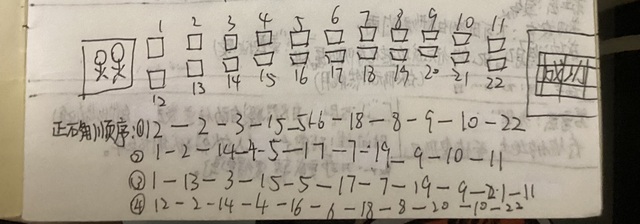 1 2 3 4 5 6 7 8 9 10 11
12 13 14 15 16 17 18 19 20 21 22
成功
正确顺序:①12-2-3-15-5-6-18-8-9-10-22
②1-2-14-4-5-17-7-19-9-10-11
③1-13-3-15-5-17-7-19-9-21-11
④12-2-14-4-16-6-18-8-20-10-22